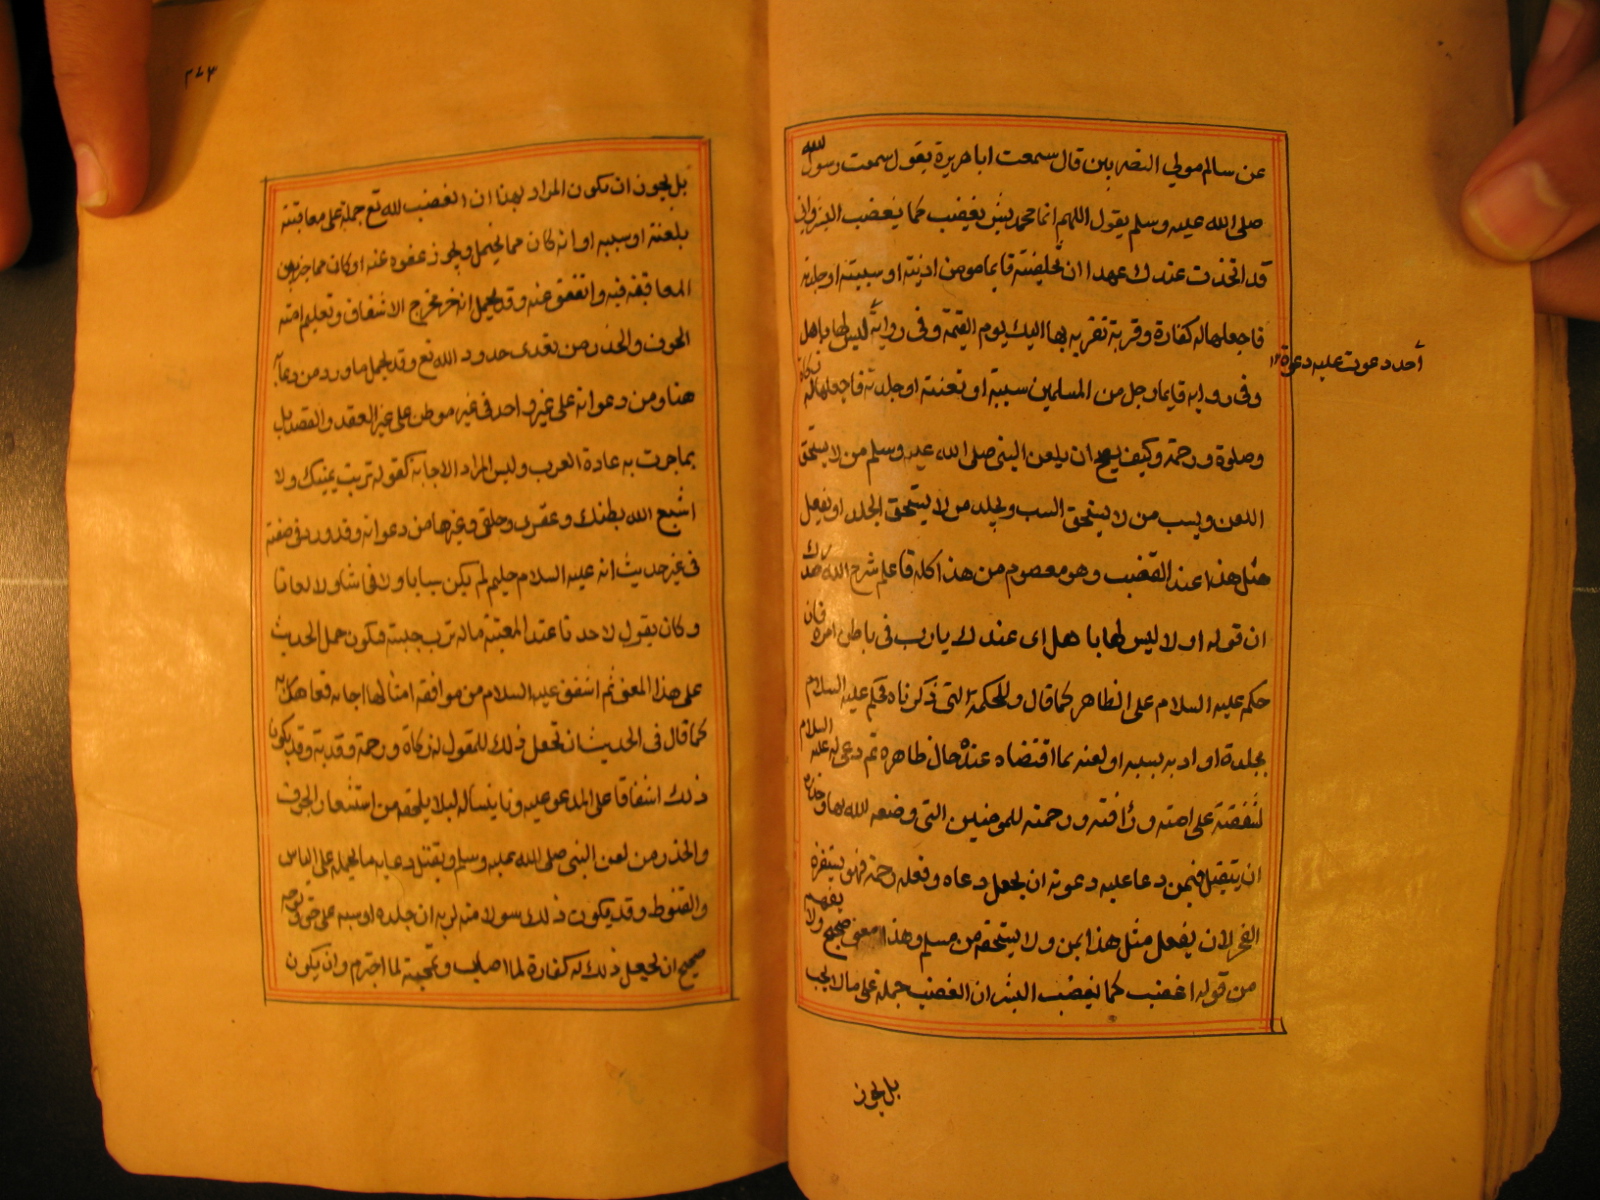 عن سالم مولي النصريين قال سمعت ابا هريرة يقول سمعت رسول الله
صلى الله عليه وسلم يقول اللهم انما محمد بشر يغضب كما يغضب البشر واني
قد اتخذت عندك عهدا ان تخلفنيه فايما مومن اذيته او سببته او جلدته
فاجعلها له كفارة وقربة تقربه بها اليك يوم القيمة وفى رواية ليس لها باهل
أحد دعوت عليه دعوة ١٢
وفى رواية فايما رجل من المسلمين سببته او لعنته او جلدته فاجعلها له زكاة
وصلوة ورحمة وكيف يصح ان يلعن النبى صلى الله عليه وسلم من لا يستحق
اللعن ويسب من لا يستحق السب ويجلد من لا يستحق الجلد او يفعل
مثل هذا عند الغضب وهو معصوم من هذا كله فاعلم شرح الله صدرك
ان قوله اولا ليس لها باهل اى عندك يا رب فى باطن امره فان
حكمه عليه السلام على الظاهر كما قال وللحكمة التى ذكرناه فحكم عليه السلام
بجلدة او ادبه بسبه او لعنه بما اقتضاه عنده حال ظاهره ثم دعى له عليه السلام
لشفقته على امته ورافته ورحمته للمومنين التى وضعه الله بها وحذره
ان يتقبل فيمن دعا عليه دعوته ان يجعل دعاه وفعله رحمة فهو
لان يفعل مثل هذا بمن ولا يستحقه من مسلم وهذا معنى صحيح ولا يفهم
من قوله اغضب كما يغضب البشر ان الغضب حمله على ما لا يجب
بل يجوز
٢٧٣
بل يجوز ان يكون المراد بهذا ان الغضب لله تع حمله على معاقبته
بلعنه او سببه او انه كان مما يحتمل ويجوز عفوه عنه او كان مما خير بين
المعاقبة فيه والعفو عنه وقد يحمل انه خرج مخرج الاشفاق وتعليم امته
الخوف والحذر من تعدى حدود الله تع وقد يحمل ما ورد من دعآئه
هنا ومن دعواته على غير واحد فى غير موطن على غير العقد والقصد بل
بما جرت به عادة العرب وليس المراد الاجابة كقوله تربت يمينك ولا
اشبع الله بطنك وعقرى وحلقى وغيرها من دعواته وقد ورد فى صفته
فى غير حديث انه عليه السلام حليم لم يكن سبابا ولا فحاشا ولا لعانا
وكان يقول لاحدنا عند المعتبة ماله ترب جبينه فيكون حمل الحديث
على هذا المعنى ثم اشفق عليه السلام من موافقة امثالها اجابة فعاهد ربه
كما قال فى الحديث ان تجعل ذلك للمقول له زكاة ورحمة وقربة وقد يكون
ذلك اشفاقا على المدعو عليه وتانيسا له ليلا يلحقه من استشعار الخوف
والحذر من لعن النبى صلى الله عليه وسلم ويقبل دعايه ما يحمله على الياس
والقنوط وقد يكون ذلك سوالا منه لربه ان جلده او سبه على حق وبوجه
صحيح ان يجعل ذلك له كفارة لما اصاب وتمحية لما اجترم وان يكون